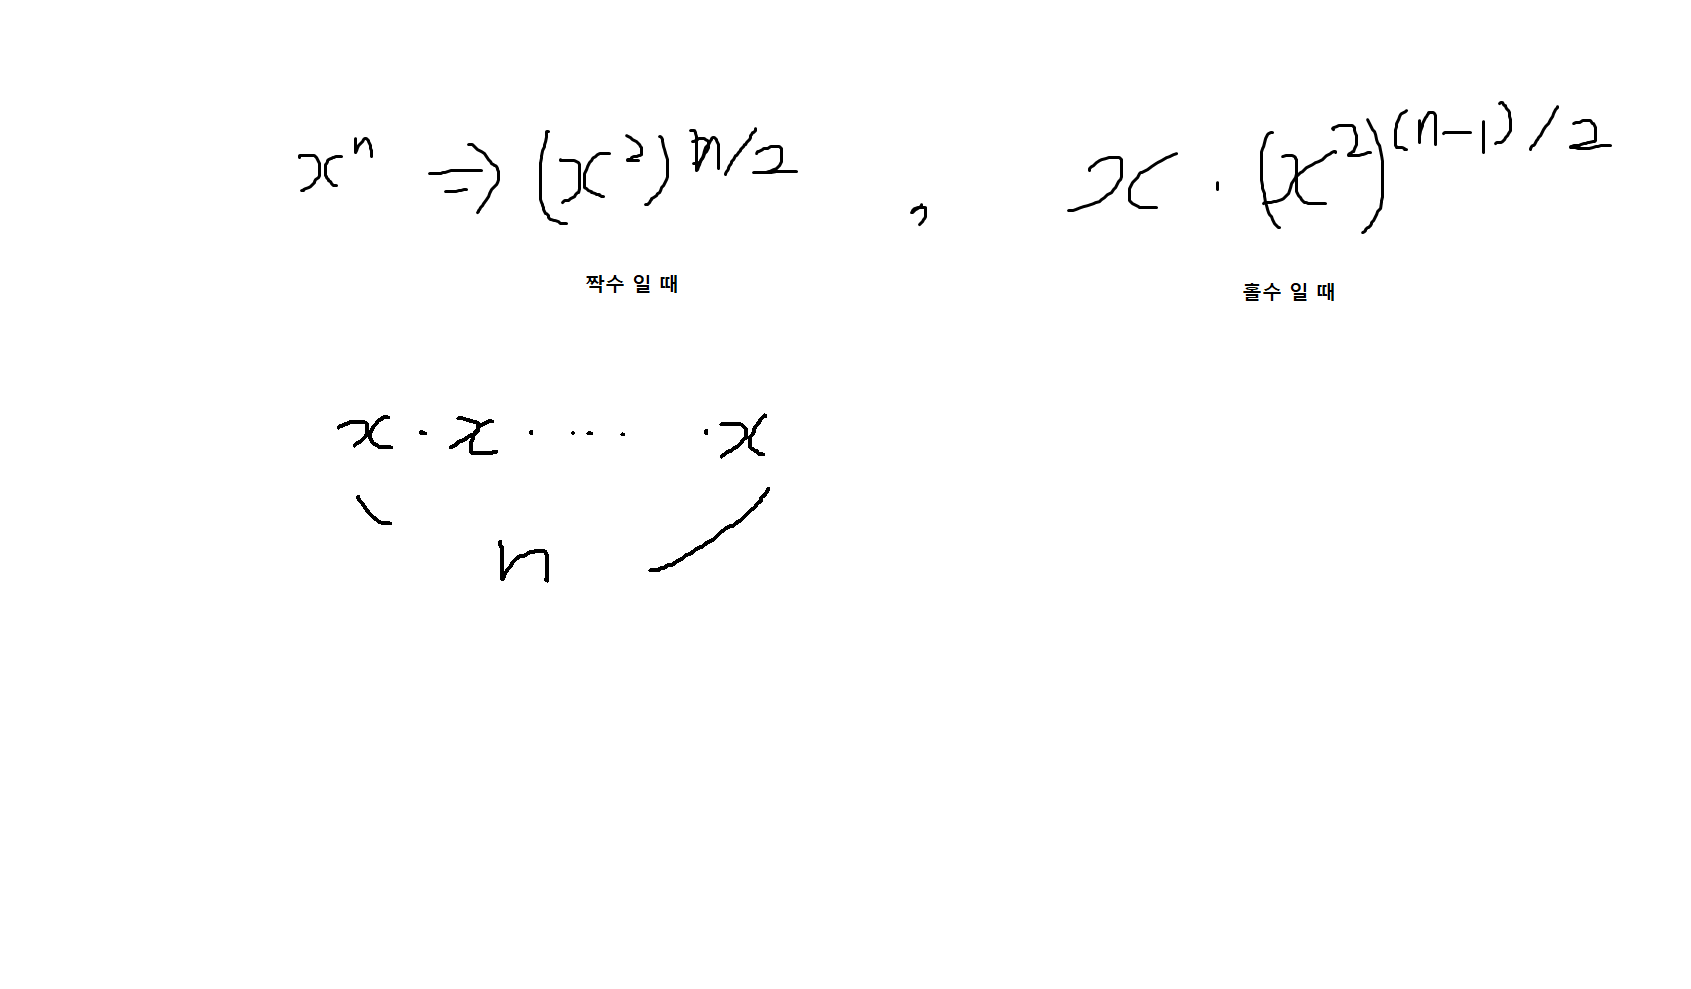 xⁿ ⇒ (x²)^n/2 , x · (x²)^(n-1)/2
짝수 일 때 홀수 일 때
x · x · ··· · x
n